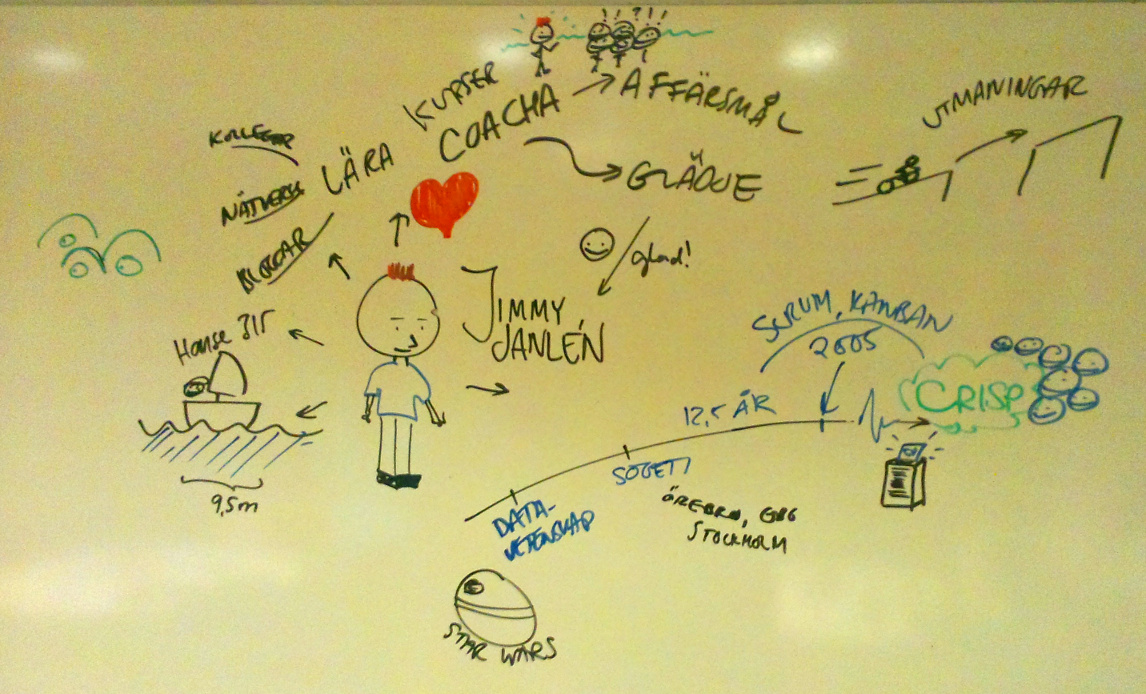 !! ? ! !
KURSER
COACHA
AFFÄRSMÅL
UTMANINGAR
KOLLEGOR
LÄRA
NÄTVERK
GLÄDJE
glad!
JIMMY
JANLÉN
Hanse 315
9,5m
SCRUM, KANBAN
2005
CRISP
12,5 ÅR
SOGETI
ÖREBRO, GBG
STOCKHOLM
DATA-
VETENSKAP
STAR WARS